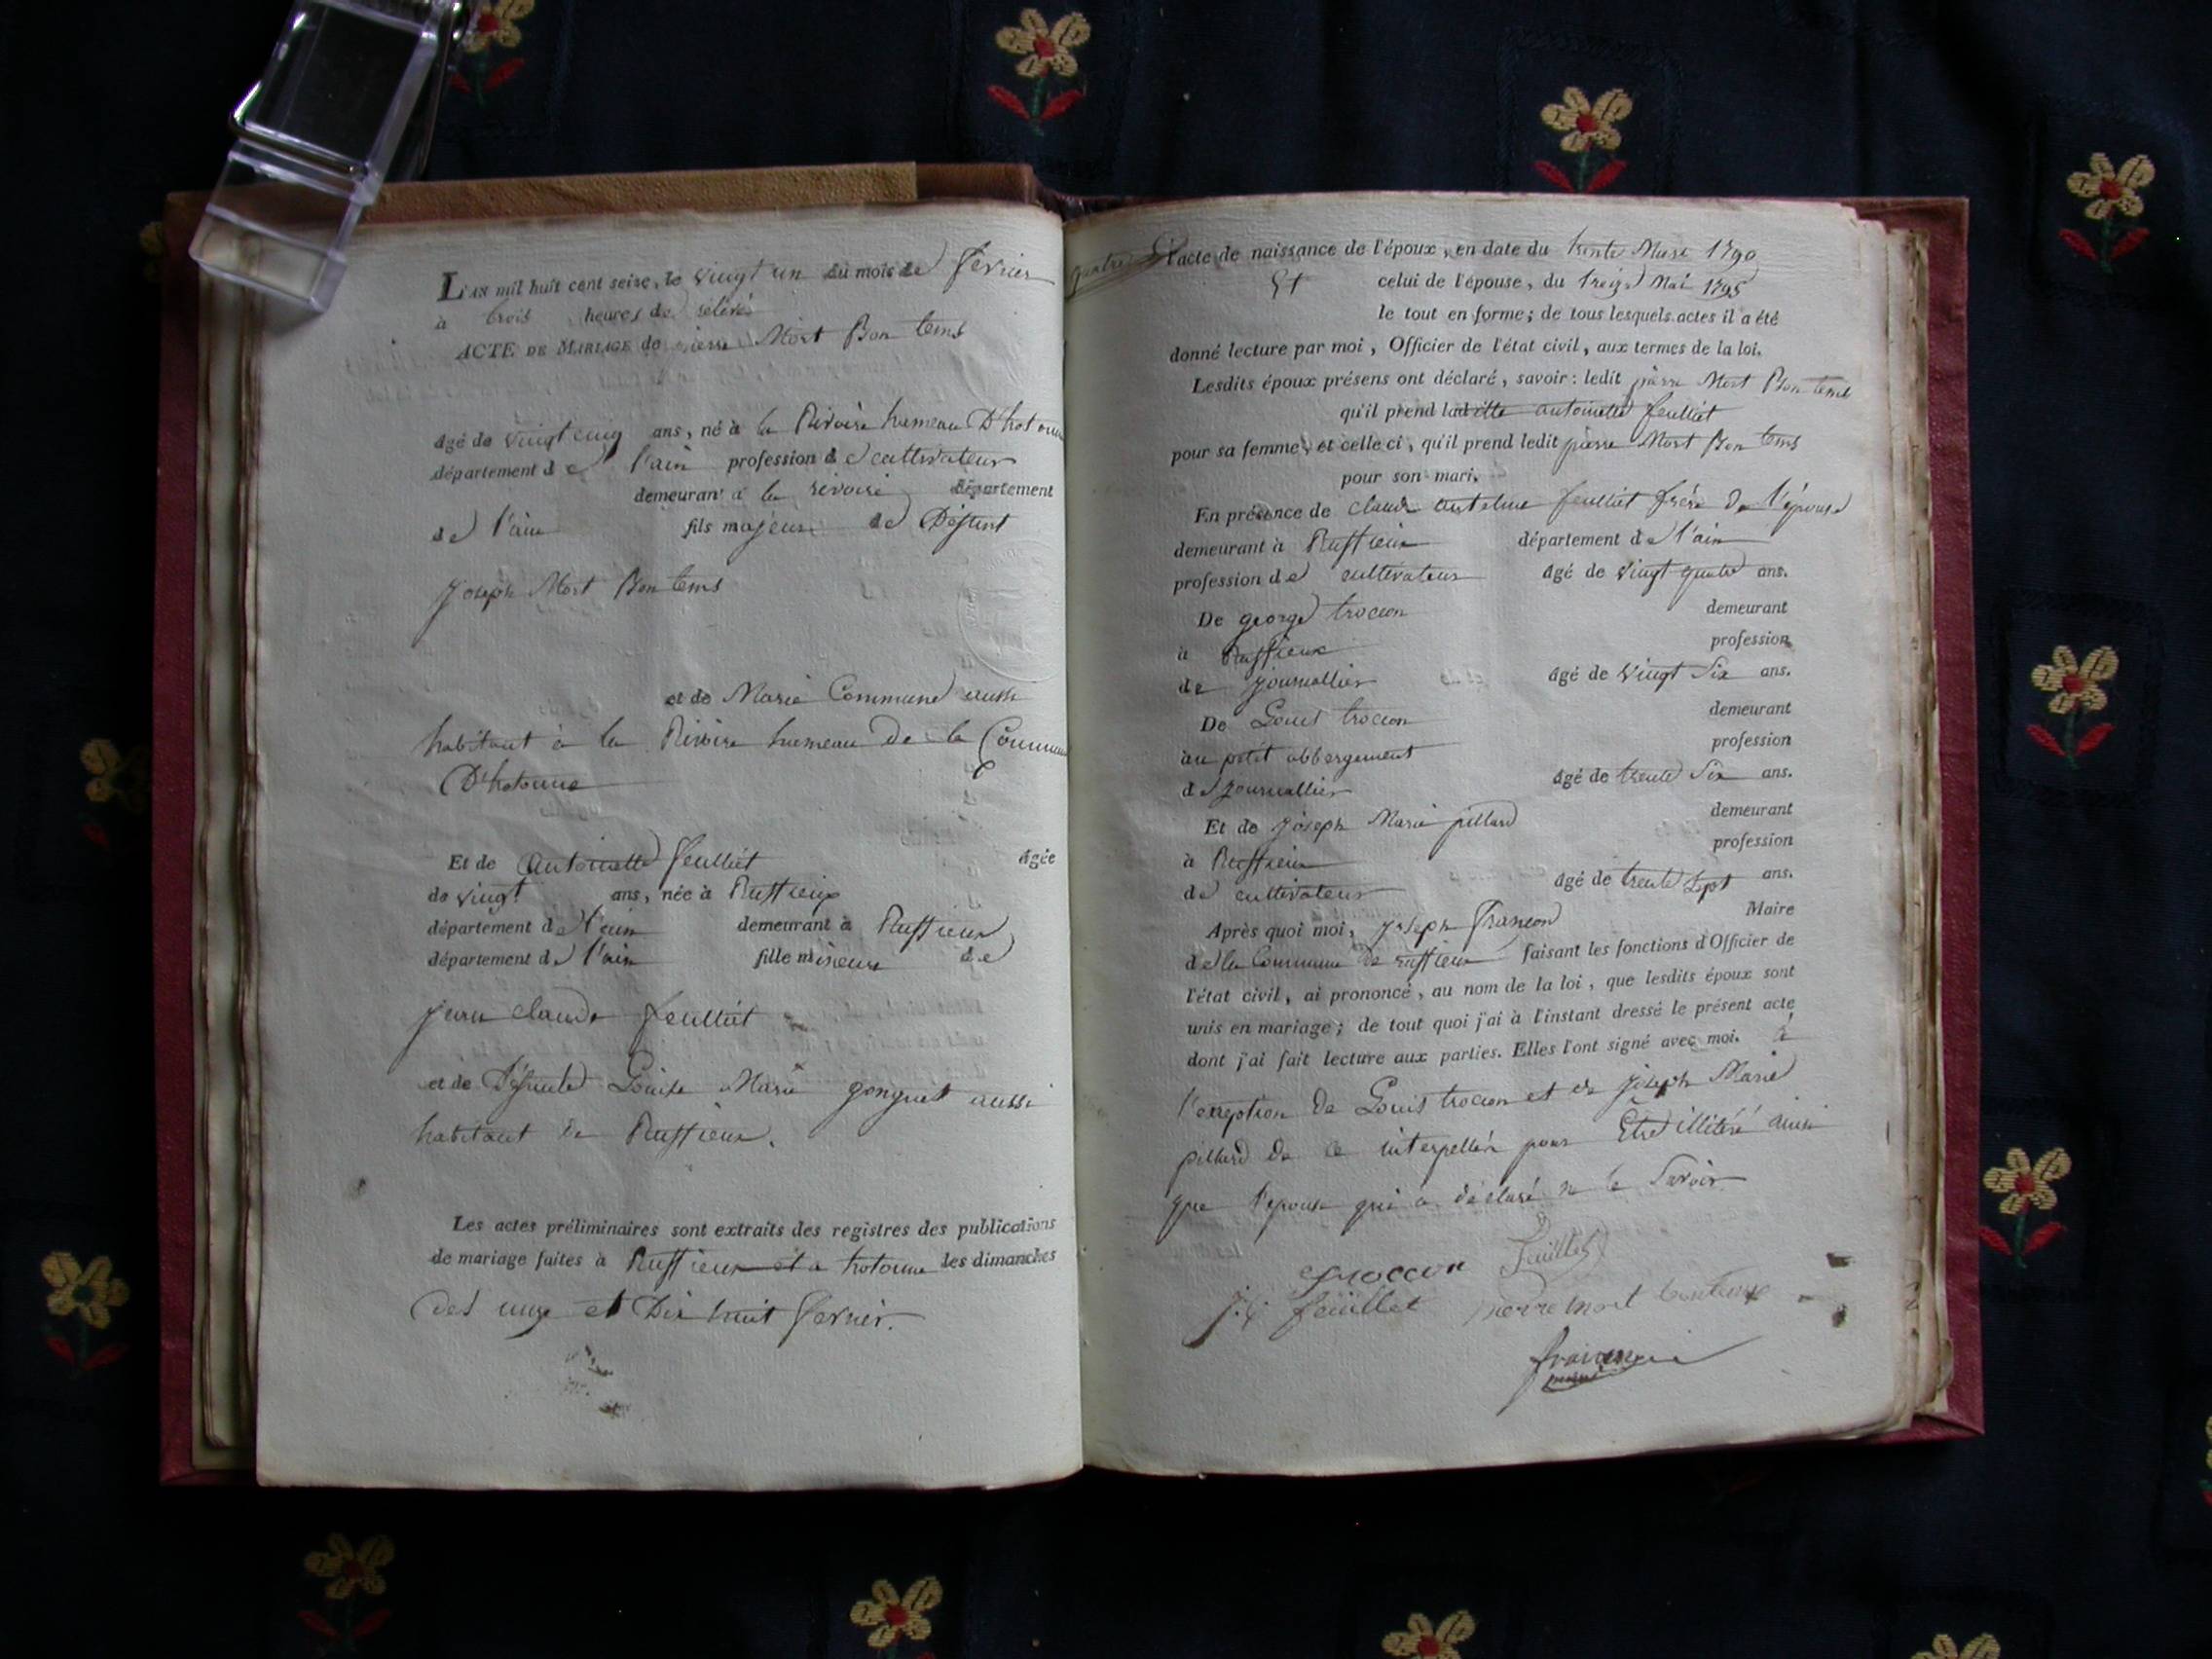 L'AN mil huit cent seize, le vingt un du mois de fevrier
à trois heures de relevé
ACTE DE MARIAGE de pierre Mort Bon tems
âgé de vingt cinq ans, né à la Rivoire hameau D'hotonne
département de l'ain profession de cultivateur
demeurant à la rivoire département
de l'ain fils majeur de Défunt
Joseph Mort Bon tems
et de Marie Commune aussi
habitant à la Rivoire hameau de la Commune
D'hotonne
Et de Antoinette feulliet âgée
de vingt ans, née à Ruffieux
département de l'ain demeurant à Ruffieux
département de l'ain fille mineure de
jean claude feulliet
et de Défunte Louise Marie gonguet aussi
habitant de Ruffieux.
Les actes préliminaires sont extraits des registres des publications
de mariage faites à Ruffieux et a hotonne les dimanches
des onze et Dix huit fevrier.
l'acte de naissance de l'époux, en date du trente Mars 1790
Et celui de l'épouse, du treize Mai 1795
le tout en forme; de tous lesquels actes il a été
donné lecture par moi, Officier de l'état civil, aux termes de la loi.
Lesdits époux présens ont déclaré, savoir: ledit pierre Mort Bon tems
qu'il prend ladite antoinette feulliet
pour sa femme, et celle ci, qu'il prend ledit pierre Mort Bon tems
pour son mari.
En présence de claude antelme feulliet frère De l'épouse
demeurant à Ruffieux département de l'ain
profession de cultivateur âgé de vingt quatre ans.
De george trocon demeurant
à Ruffieux profession
de journallier âgé de vingt six ans.
De Louis trocon demeurant
au petit abbergement profession
de journallier âgé de trente six ans.
Et de joseph Marie pillard demeurant
à Ruffieux profession
de cultivateur âgé de trente sept ans.
Après quoi moi, joseph françon Maire
de la Commune de ruffieux faisant les fonctions d'Officier de
l'état civil, ai prononcé, au nom de la loi, que lesdits époux sont
unis en mariage; de tout quoi j'ai à l'instant dressé le présent acte
dont j'ai fait lecture aux parties. Elles l'ont signé avec moi. à
l'exeption de Louis trocon et de joseph Marie
pillard de ce interpellés pour Etre illitéré ainsi
que l'epouse qui a déclaré ne le savoir
troccon feuillet
j. c. feüillet pierre mort bontemps
françon
maire